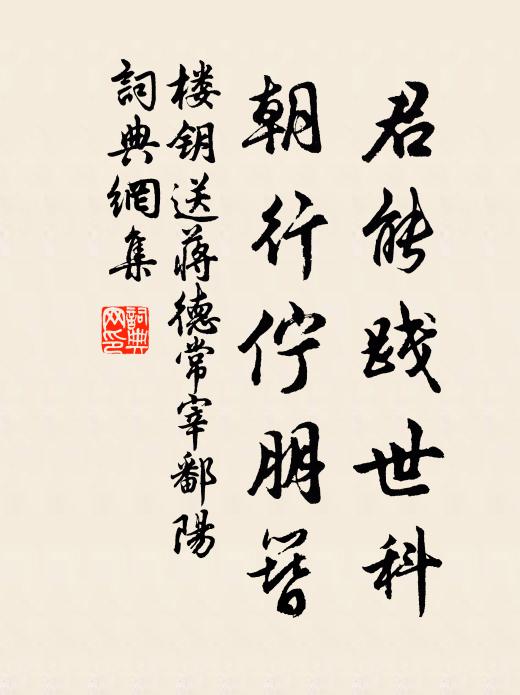 君能践世科
朝行伫朋簪
楼钥送蒋德常宰鄱陽
詞典網集
詞典网印